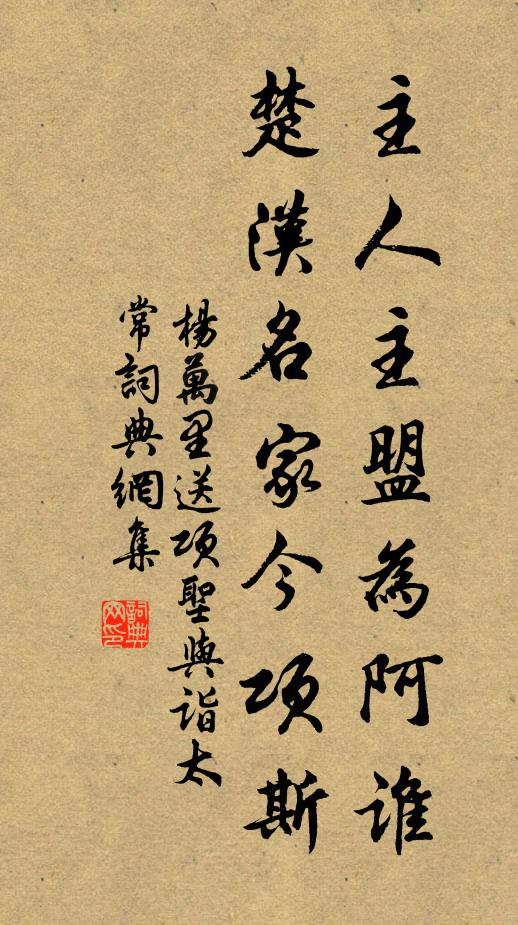 主人主盟為阿誰
楚漢名家今項斯
楊萬里送項聖與詣太
常詞典網集
詞典
网印